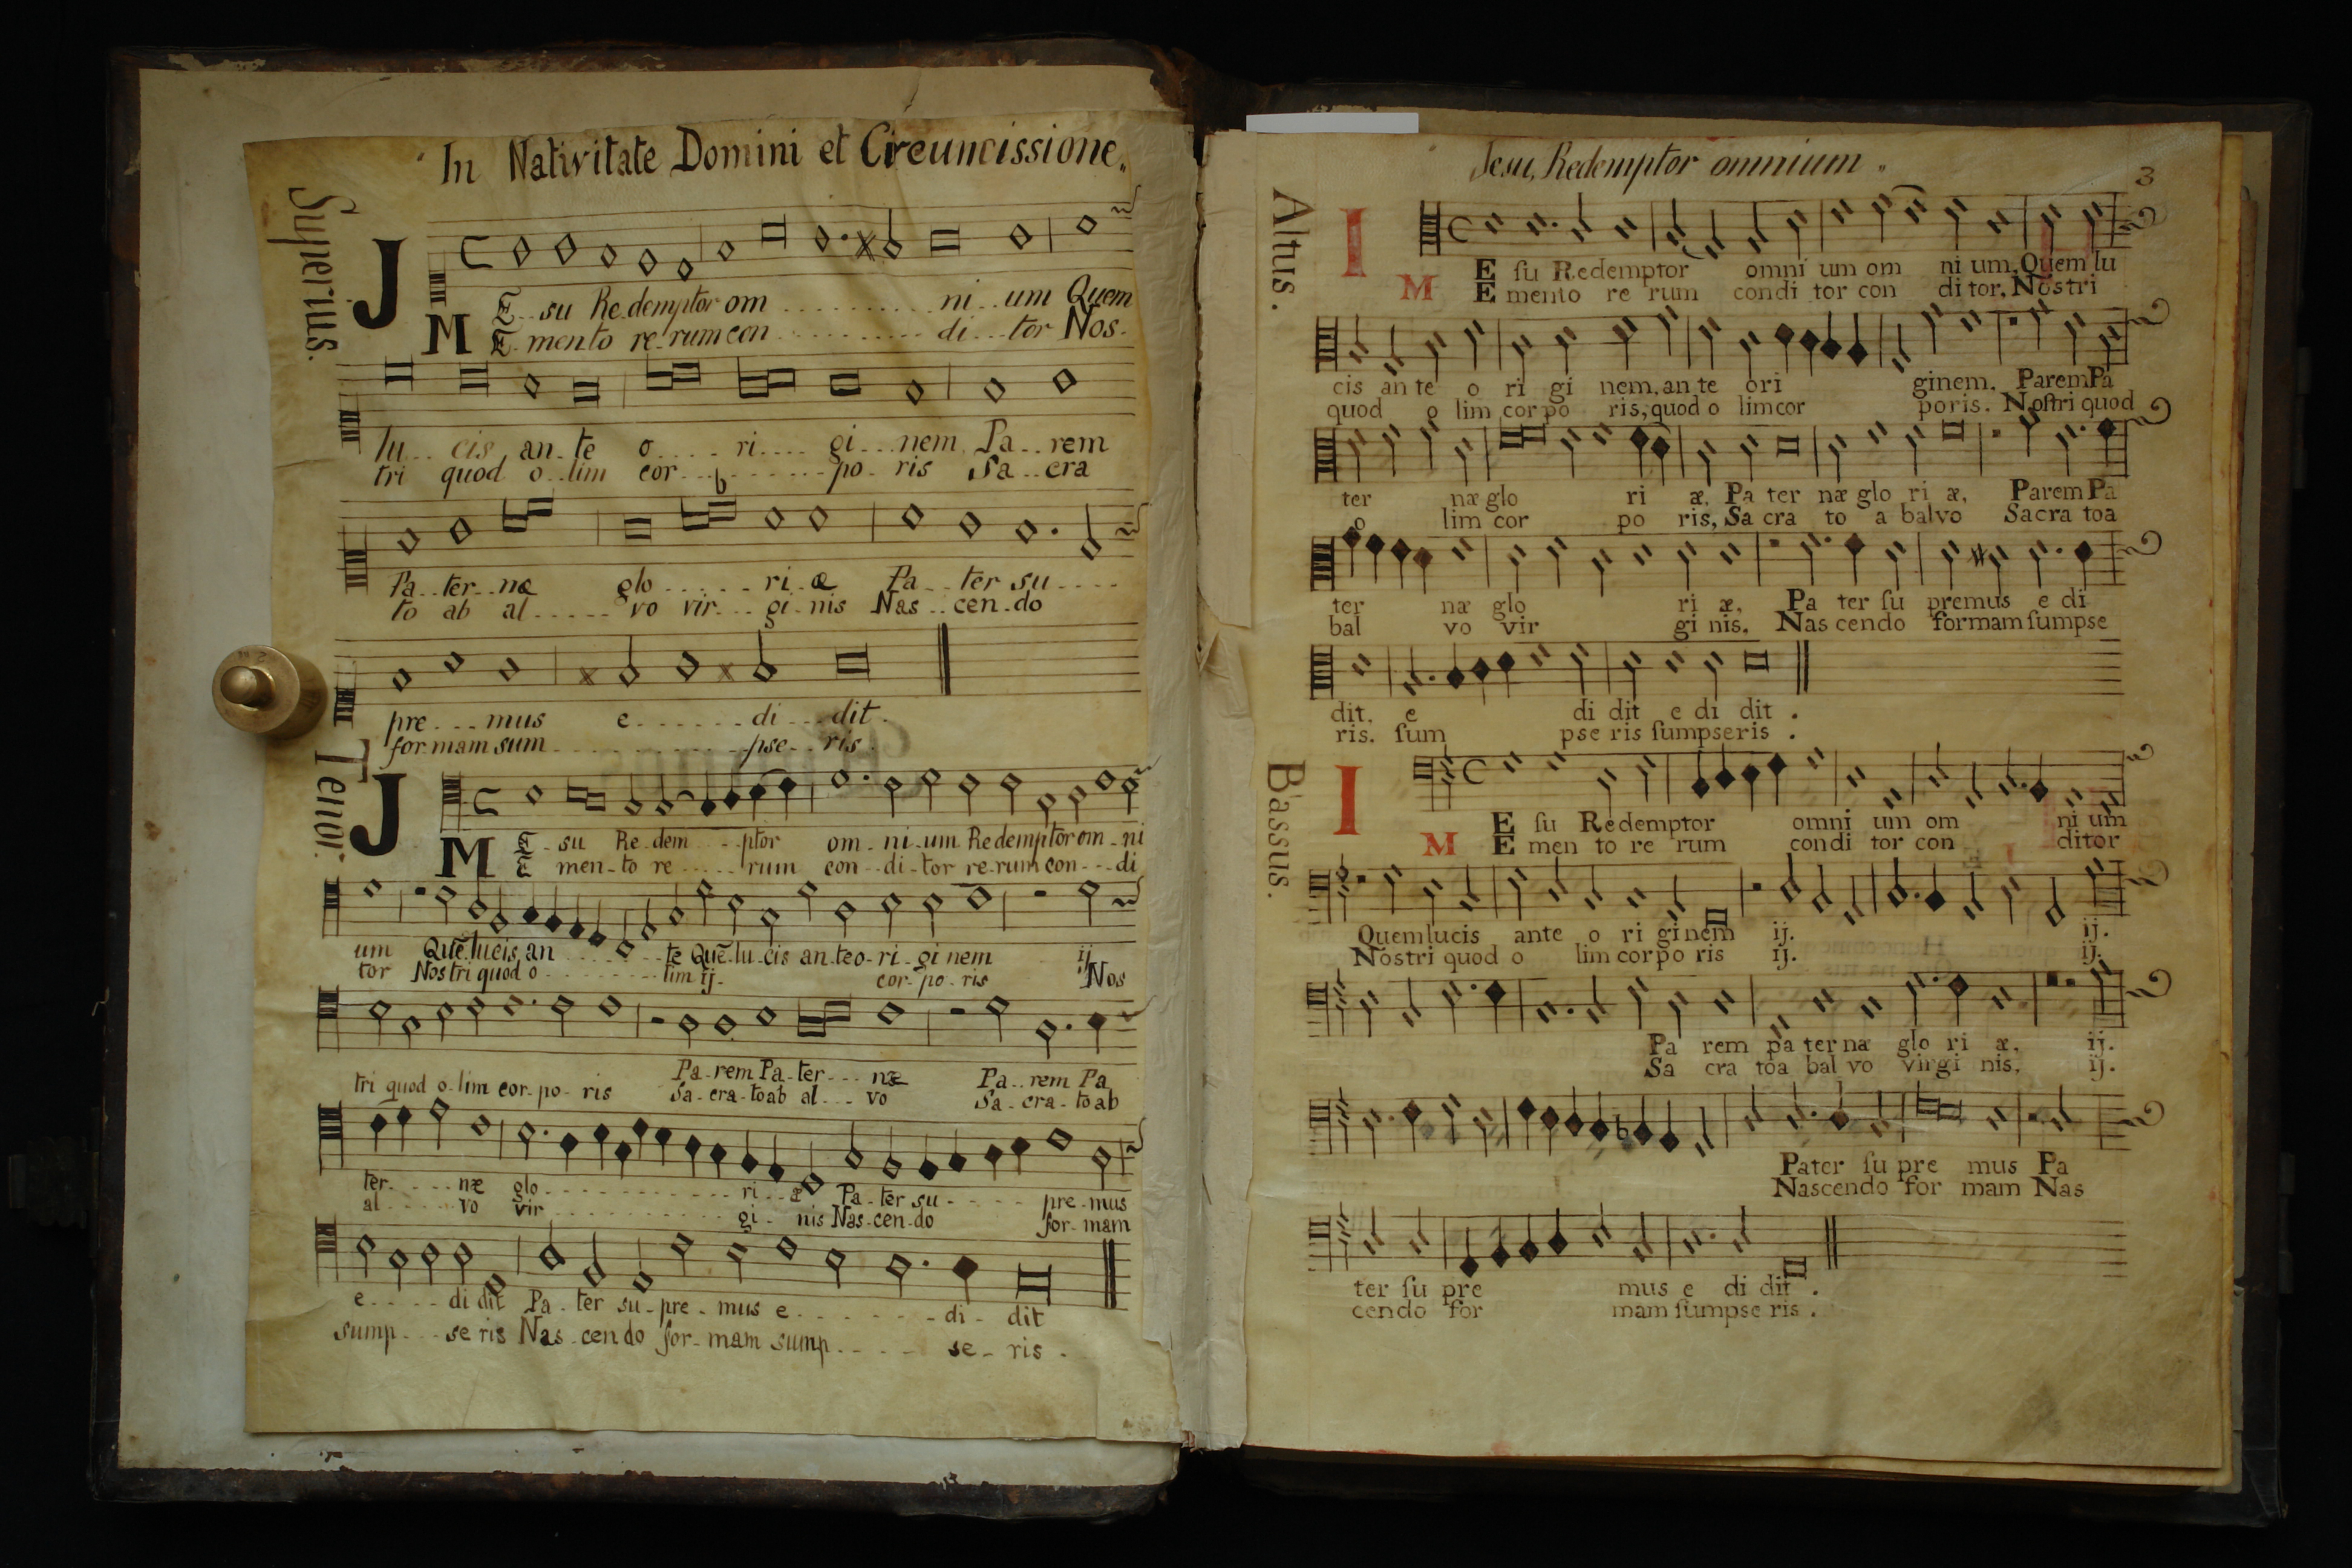 In Nativitate Domini et Circumcissione.
Superius.
J E su Re demptor om ni um Quem
M E men to re rum con di tor Nos
lu cis an te o ri gi nem Pa rem
tri quod o lim cor po ris Sa cra
Pa ter næ glo ri æ Pa ter su
to ab al vo vir gi nis Nas cen do
pre mus e di dit.
for mam sum pse ris.
Tenor.
J E su Re dem ptor om ni um Redemptor om ni
M E men to re rum con di tor re rum con di
um Quē lucis an te Quē lu cis an te o ri gi nem ij
tor Nos tri quod o lim ij. cor po ris Nos
Pa rem Pa ter næ Pa rem Pa
tri quod o lim cor po ris Sa cra to ab al vo Sa cra to ab
ter næ glo ri æ Pa ter su pre mus
al vo vir gi nis Nas cen do for mam
e di dit Pa ter su pre mus e di dit
sump se ris Nas cen do for mam sump se ris.
Jesu, Redemptor omnium.
3
Altus.
I E ſu Redemptor omni um om ni um, Quem lu
M E mento re rum condi tor con di tor, Nostri
cis an te o ri gi nem, an te ori ginem. Parem Pa
quod o lim cor po ris, quod o lim cor poris. Noſtri quod
ter næ glo ri æ, Pa ter næ glo ri æ, Parem Pa
o lim cor po ris, Sa cra to a balvo Sacra toa
ter næ glo ri æ, Pa ter ſu premus e di
bal vo vir gi nis. Nas cendo formam ſumpse
dit. e di dit e di dit.
ris. ſum pse ris ſumpseris.
Bassus.
I E ſu Redemptor omni um om ni um
M E men to re rum condi tor con ditor
Quem lucis ante o ri ginem ij. ij.
Nostri quod o lim corpo ris ij. ij.
Pa rem pa ter na glo ri æ. ij.
Sa cra toa bal vo virgi nis, ij.
Pater ſu pre mus Pa
Nascendo for mam Nas
ter ſu pre mus e di dit.
cendo for mam ſumpse ris.